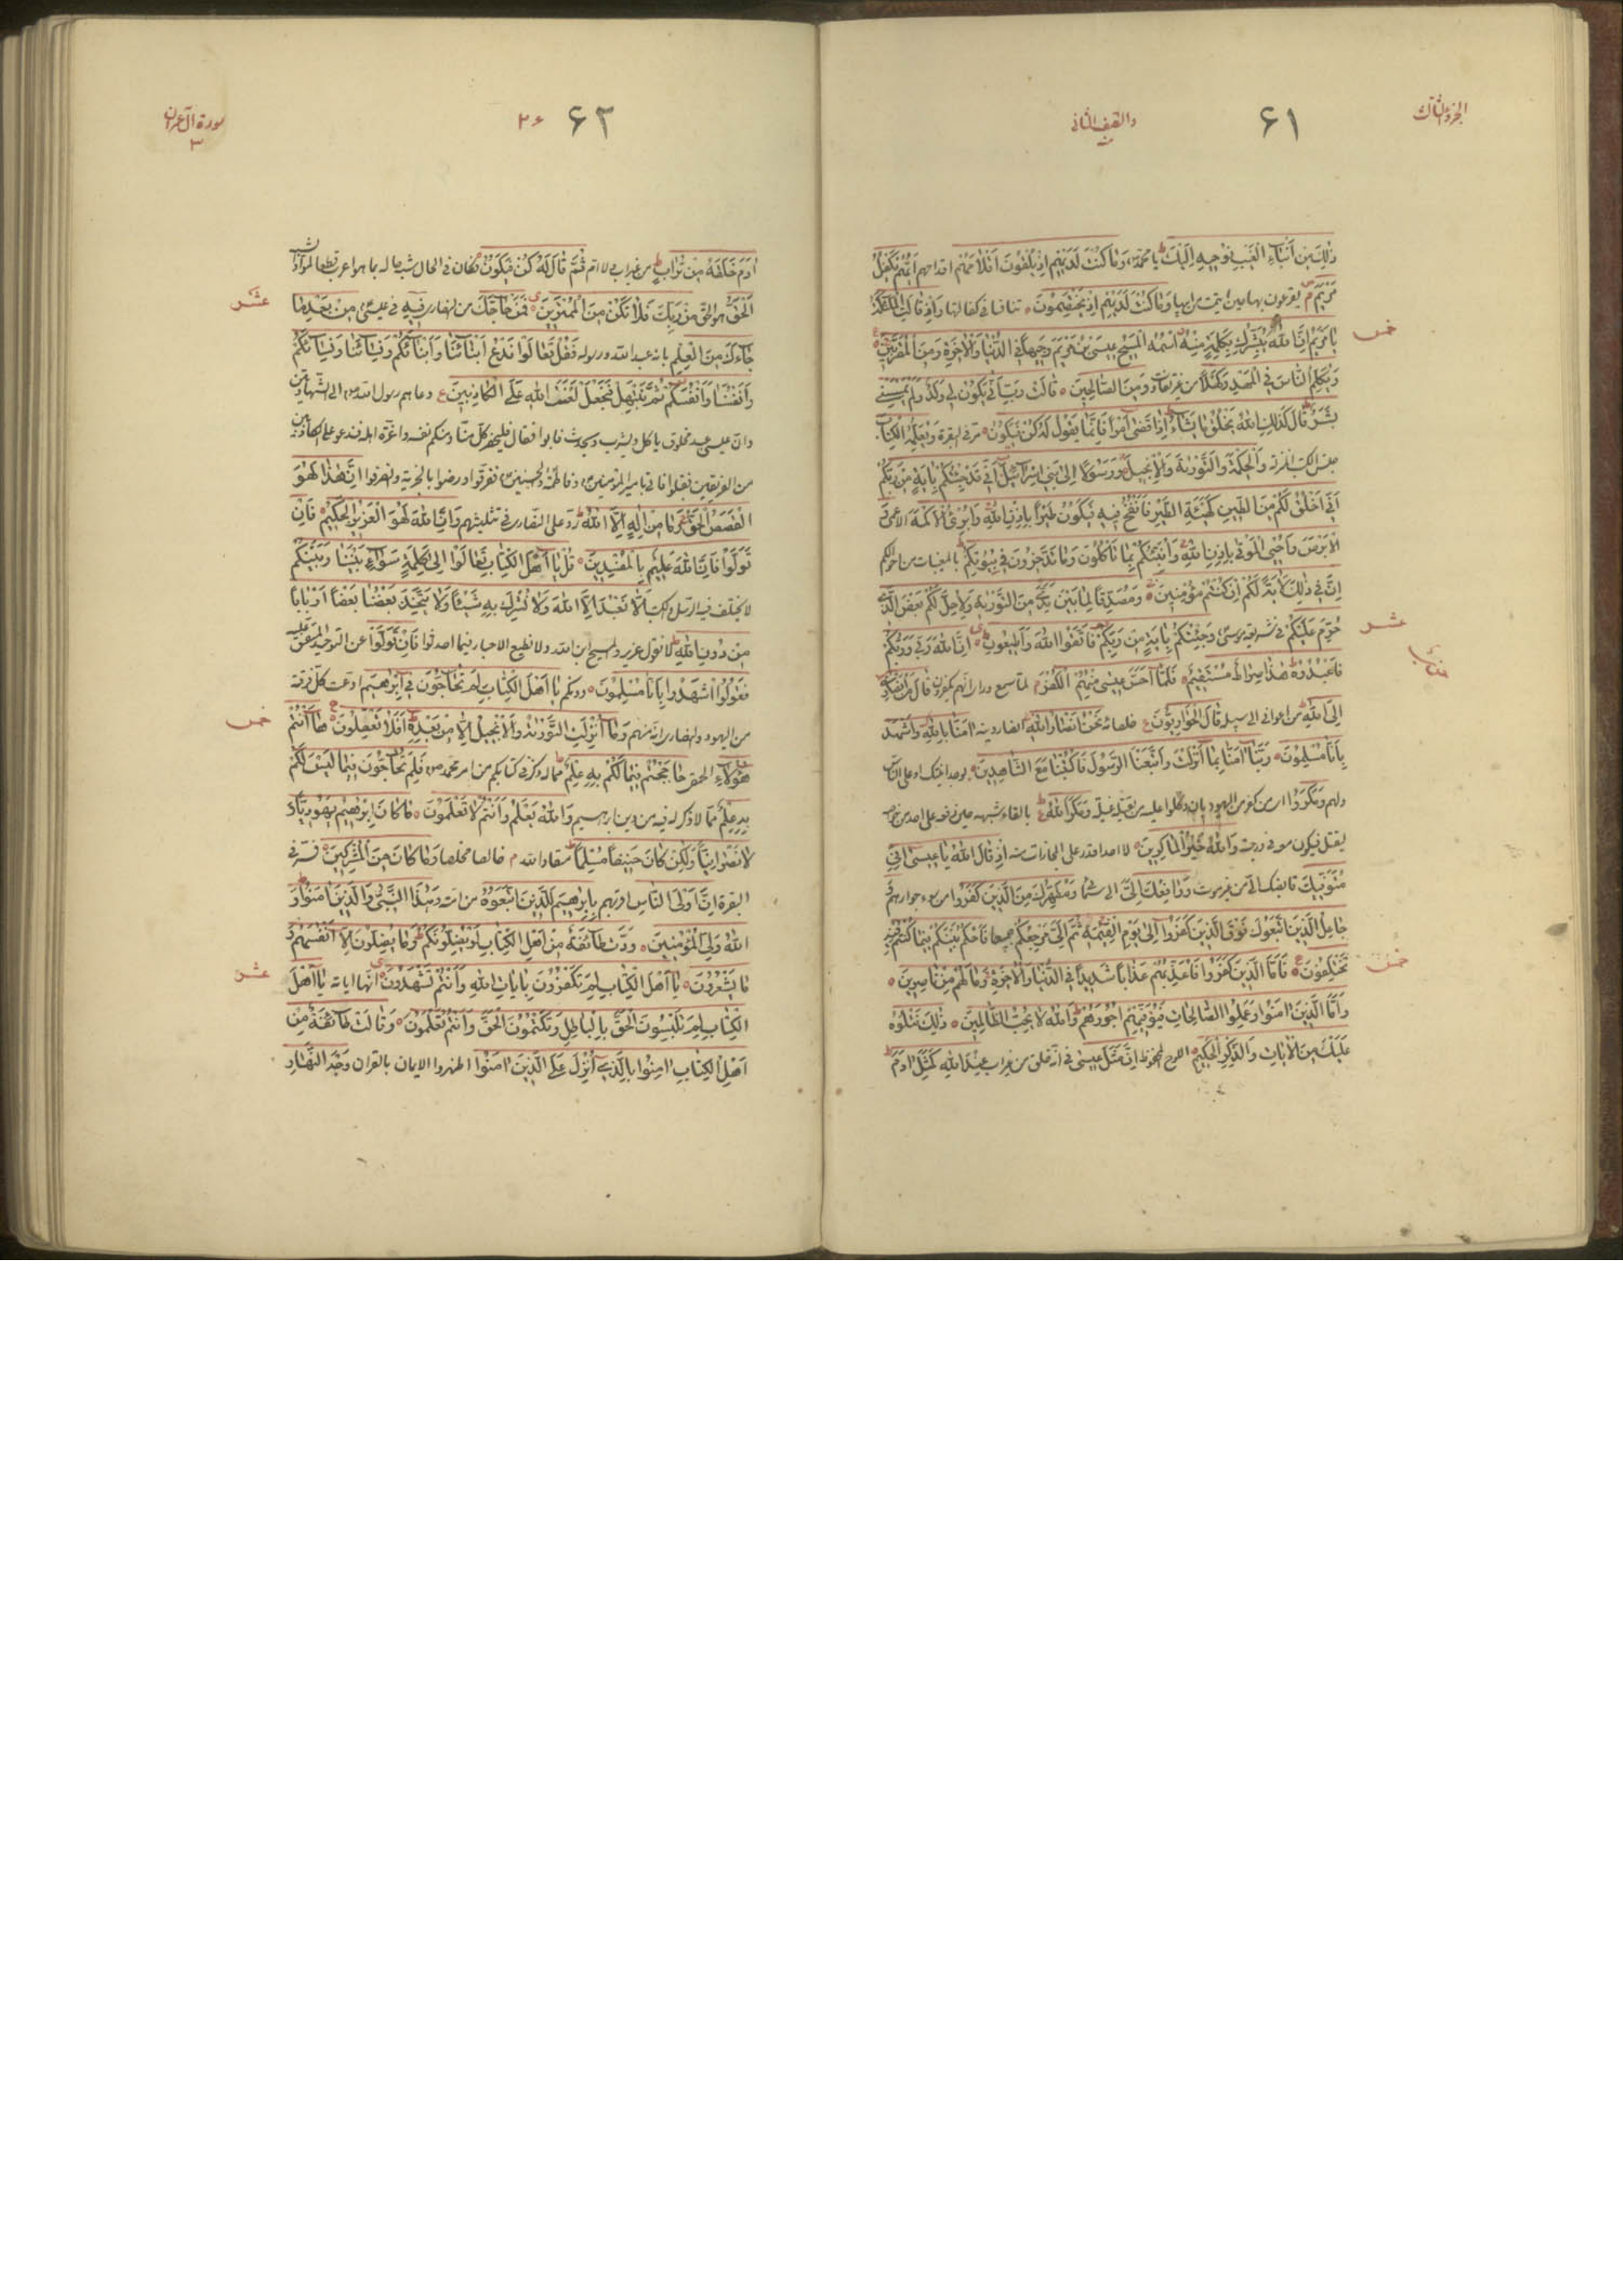 الجزء الثالث
٦١
والنصف الثانی
ذٰلِكَ مِنْ أَنْبَاءِ الْغَيْبِ نُوحِيهِ إِلَيْكَ يا محمد وَمَا كُنْتَ لَدَيْهِمْ إِذْ يُلْقُونَ أَقْلَامَهُمْ اقداحهم أَيُّهُمْ يَكْفُلُ
مَرْيَمَ يقترعون بها وَمَا كُنْتَ لَدَيْهِمْ إِذْ يَخْتَصِمُونَ تنافسا فى كفالتها إِذْ قَالَتِ الْمَلَائِكَةُ
يَا مَرْيَمُ إِنَّ اللهَ يُبَشِّرُكِ بِكَلِمَةٍ مِنْهُ اسْمُهُ الْمَسِيحُ عِيسَى بْنُ مَرْيَمَ وَجِيهاً فِي الدُّنْيَا وَالْآخِرَةِ وَمِنَ الْمُقَرَّبِينَ
وَيُكَلِّمُ النَّاسَ فِي الْمَهْدِ وَكَهْلاً وَمِنَ الصَّالِحِينَ قَالَتْ رَبِّ أَنَّى يَكُونُ لِي وَلَدٌ وَلَمْ يَمْسَسْنِي
بَشَرٌ قَالَ كَذٰلِكِ اللهُ يَخْلُقُ مَا يَشَاءُ إِذَا قَضَى أَمْراً فَإِنَّمَا يَقُولُ لَهُ كُنْ فَيَكُونُ مر فى البقرة وَيُعَلِّمُهُ الْكِتَابَ
جنس الكتب المنزلة وَالْحِكْمَةَ وَالتَّوْرٰيةَ وَالْإِنْجِيلَ وَرَسُولاً إِلَى بَنِي إِسْرَائِيلَ أَنِّي قَدْ جِئْتُكُمْ بِآيَةٍ مِنْ رَبِّكُمْ
أَنِّي أَخْلُقُ لَكُمْ مِنَ الطِّينِ كَهَيْئَةِ الطَّيْرِ فَأَنْفُخُ فِيهِ فَيَكُونُ طَيْراً بِإِذْنِ اللهِ وَأُبْرِئُ الْأَكْمَهَ الاعمى وَ
الْأَبْرَصَ وَأُحْيِي الْمَوْتَى بِإِذْنِ اللهِ وَأُنَبِّئُكُمْ بِمَا تَأْكُلُونَ وَمَا تَدَّخِرُونَ فِي بُيُوتِكُمْ بالمغيبات من احوالكم
إِنَّ فِي ذٰلِكَ لَآيَةً لَكُمْ إِنْ كُنْتُمْ مُؤْمِنِينَ وَمُصَدِّقاً لِمَا بَيْنَ يَدَيَّ مِنَ التَّوْرٰيةِ وَلِأُحِلَّ لَكُمْ بَعْضَ الَّذِي
حُرِّمَ عَلَيْكُمْ فى شريعة موسى وَجِئْتُكُمْ بِآيَةٍ مِنْ رَبِّكُمْ فَاتَّقُوا اللهَ وَأَطِيعُونِ إِنَّ اللهَ رَبِّي وَرَبُّكُمْ
فَاعْبُدُوهُ هٰذَا صِرَاطٌ مُسْتَقِيمٌ فَلَمَّا أَحَسَّ عِيسَى مِنْهُمُ الْكُفْرَ لما سمع وراى انهم يكفرون قَالَ مَنْ أَنْصَارِي
إِلَى اللهِ من اعوانى الى سبيله قَالَ الْحَوَارِيُّونَ خلصائه نَحْنُ أَنْصَارُ اللهِ انصار دينه آمَنَّا بِاللهِ وَاشْهَدْ
بِأَنَّا مُسْلِمُونَ رَبَّنَا آمَنَّا بِمَا أَنْزَلْتَ وَاتَّبَعْنَا الرَّسُولَ فَاكْتُبْنَا مَعَ الشَّاهِدِينَ
وَمَكَرُوا وَمَكَرَ اللهُ بالقاء شبهه
وَاللهُ خَيْرُ الْمَاكِرِينَ إِذْ قَالَ اللهُ يَا عِيسَى إِنِّي
مُتَوَفِّيكَ قابضك الى من غير موت وَرَافِعُكَ إِلَيَّ الى سمائى وَمُطَهِّرُكَ مِنَ الَّذِينَ كَفَرُوا من سوء جوارهم وَ
جَاعِلُ الَّذِينَ اتَّبَعُوكَ فَوْقَ الَّذِينَ كَفَرُوا إِلَى يَوْمِ الْقِيٰمَةِ ثُمَّ إِلَيَّ مَرْجِعُكُمْ جميعا فَأَحْكُمُ بَيْنَكُمْ فِيمَا كُنْتُمْ فِيهِ
تَخْتَلِفُونَ فَأَمَّا الَّذِينَ كَفَرُوا فَأُعَذِّبُهُمْ عَذَاباً شَدِيداً فِي الدُّنْيَا وَالْآخِرَةِ وَمَا لَهُمْ مِنْ نَاصِرِينَ
وَأَمَّا الَّذِينَ آمَنُوا وَعَمِلُوا الصَّالِحَاتِ فَيُوَفِّيهِمْ أُجُورَهُمْ وَاللهُ لَا يُحِبُّ الظَّالِمِينَ ذٰلِكَ نَتْلُوهُ
عَلَيْكَ مِنَ الْآيَاتِ وَالذِّكْرِ الْحَكِيمِ اللوح المحفوظ إِنَّ مَثَلَ عِيسَى عِنْدَ اللهِ كَمَثَلِ آدَمَ
خمس
عشر
خمس
٦٢
٢٦
سورة آل عمران
٣
آدَمَ خَلَقَهُ مِنْ تُرَابٍ من غير اب ولا ام ثُمَّ قَالَ لَهُ كُنْ فَيَكُونُ فكان فى الحال
الْحَقُّ هو الحق مِنْ رَبِّكَ فَلَا تَكُنْ مِنَ الْمُمْتَرِينَ فَمَنْ حَاجَّكَ من النصارى فِيهِ فى عيسى مِنْ بَعْدِ مَا
جَاءَكَ مِنَ الْعِلْمِ بانه عبد الله ورسوله فَقُلْ تَعَالَوْا نَدْعُ أَبْنَاءَنَا وَأَبْنَاءَكُمْ وَنِسَاءَنَا وَنِسَاءَكُمْ
وَأَنْفُسَنَا وَأَنْفُسَكُمْ ثُمَّ نَبْتَهِلْ فَنَجْعَلْ لَعْنَتَ اللهِ عَلَى الْكَاذِبِينَ دعاهم رسول الله الى الشهادتين
وان عيسى عبد مخلوق ياكل ويشرب ويحدث فابوا فقال
إِنَّ هٰذَا لَهُوَ
الْقَصَصُ الْحَقُّ وَمَا مِنْ إِلٰهٍ إِلَّا اللهُ رد على النصارى فى تثليثهم وَإِنَّ اللهَ لَهُوَ الْعَزِيزُ الْحَكِيمُ فَإِنْ
تَوَلَّوْا فَإِنَّ اللهَ عَلِيمٌ بِالْمُفْسِدِينَ قُلْ يَا أَهْلَ الْكِتَابِ تَعَالَوْا إِلَى كَلِمَةٍ سَوَاءٍ بَيْنَنَا وَبَيْنَكُمْ
لا يختلف فيها الرسل والكتب أَلَّا نَعْبُدَ إِلَّا اللهَ وَلَا نُشْرِكَ بِهِ شَيْئاً وَلَا يَتَّخِذَ بَعْضُنَا بَعْضاً أَرْبَاباً
مِنْ دُونِ اللهِ لا نقول عزير والمسيح ابن الله ولا نطيع الاحبار فيما احدثوا فَإِنْ تَوَلَّوْا عن التوحيد
فَقُولُوا اشْهَدُوا بِأَنَّا مُسْلِمُونَ دونكم يَا أَهْلَ الْكِتَابِ لِمَ تُحَاجُّونَ فِي إِبْرٰهِيمَ ادعت كل فرقة
من اليهود والنصارى انه منهم وَمَا أُنْزِلَتِ التَّوْرٰيةُ وَالْإِنْجِيلُ إِلَّا مِنْ بَعْدِهِ أَفَلَا تَعْقِلُونَ هَا أَنْتُمْ
هٰؤُلَاءِ الحمقى حَاجَجْتُمْ فِيمَا لَكُمْ بِهِ عِلْمٌ مما ذكر فى كتابكم من امر محمد فَلِمَ تُحَاجُّونَ فِيمَا لَيْسَ لَكُمْ
بِهِ عِلْمٌ مما لا ذكر له فيه من دين ابرهيم وَاللهُ يَعْلَمُ وَأَنْتُمْ لَا تَعْلَمُونَ مَا كَانَ إِبْرٰهِيمُ يَهُودِيّاً وَ
لَا نَصْرَانِيّاً وَلٰكِنْ كَانَ حَنِيفاً مُسْلِماً منقادا لله خالصا مخلصا وَمَا كَانَ مِنَ الْمُشْرِكِينَ فسر فى
البقرة إِنَّ أَوْلَى النَّاسِ اقربهم بِإِبْرٰهِيمَ لَلَّذِينَ اتَّبَعُوهُ من امته وَهٰذَا النَّبِيُّ وَالَّذِينَ آمَنُوا وَ
اللهُ وَلِيُّ الْمُؤْمِنِينَ وَدَّتْ طَائِفَةٌ مِنْ أَهْلِ الْكِتَابِ لَوْ يُضِلُّونَكُمْ وَمَا يُضِلُّونَ إِلَّا أَنْفُسَهُمْ وَ
مَا يَشْعُرُونَ يَا أَهْلَ الْكِتَابِ لِمَ تَكْفُرُونَ بِآيَاتِ اللهِ وَأَنْتُمْ تَشْهَدُونَ انها اياته يَا أَهْلَ
الْكِتَابِ لِمَ تَلْبِسُونَ الْحَقَّ بِالْبَاطِلِ وَتَكْتُمُونَ الْحَقَّ وَأَنْتُمْ تَعْلَمُونَ وَقَالَتْ طَائِفَةٌ مِنْ
أَهْلِ الْكِتَابِ آمِنُوا بِالَّذِي أُنْزِلَ عَلَى الَّذِينَ آمَنُوا اظهروا الايمان بالقران وَجْهَ النَّهَارِ
عشر
خمس
عشر